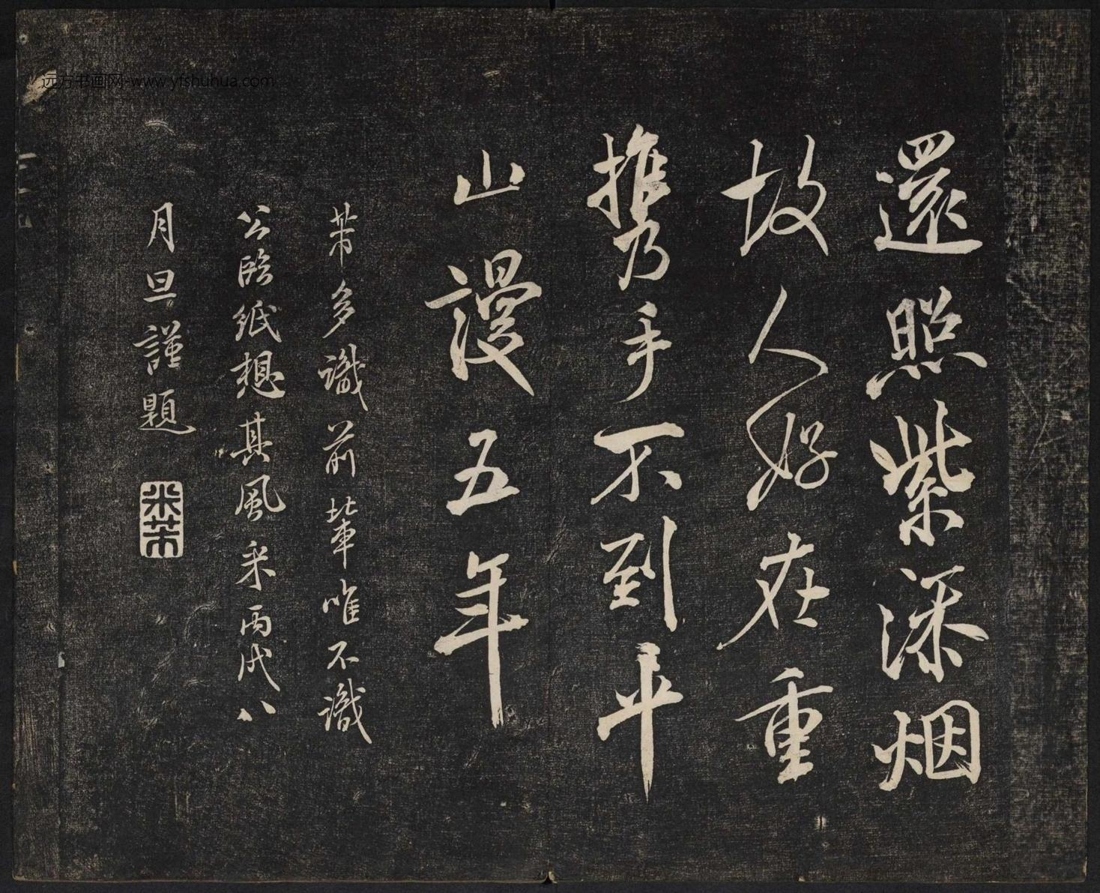 還照紫深烟
故人好在重
携手不到平
山謾五年
芾多識前輩唯不識
公臨紙想其風采丙戌八
月旦謹題
米芾
远方书画网-www.yfshuhua.com